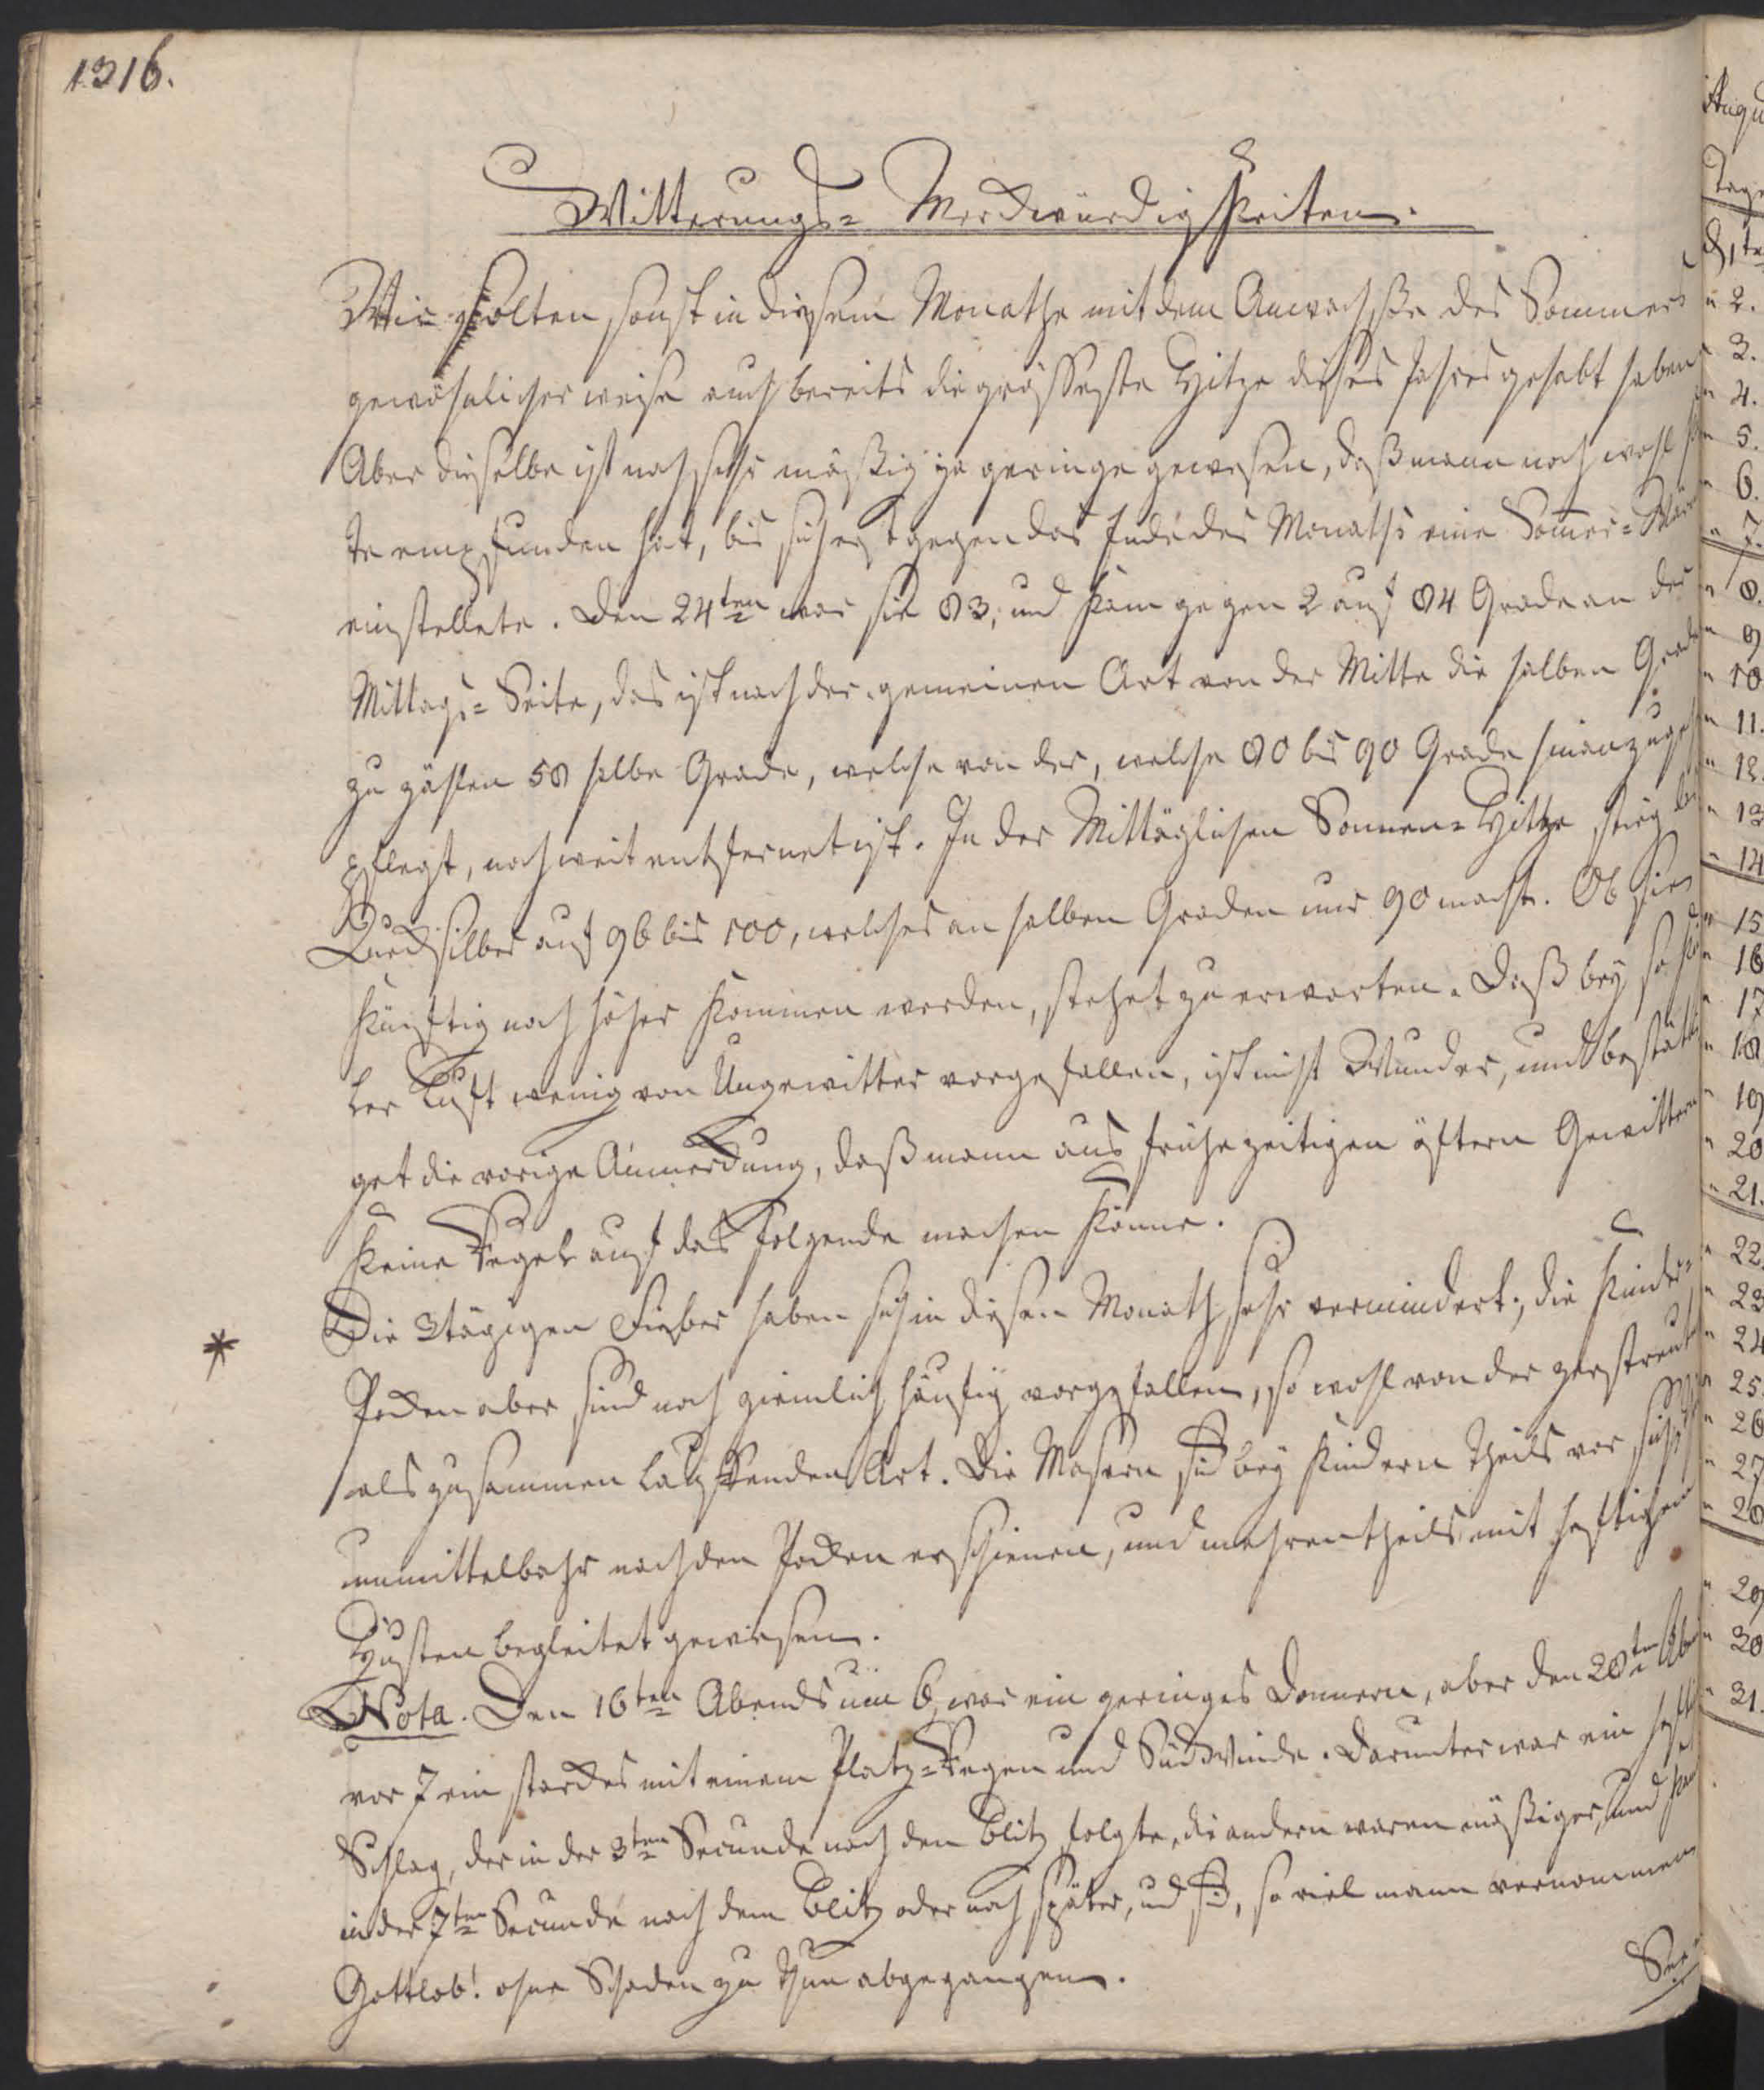 1316.
Witterungs= Merckwürdigkeiten.
Wir solten sonst in diesem Monathe mit dem Anwachsse des Sommers
gewöhnlicher weise auch bereits die grösseste Hitze dieses Jahres gehabt haben
Aber dieselbe ist noch sehr mässig ja geringe gewesen, daß mann noch wohl
te empfunden hat, bis sich erst gegen das Ende des Monaths eine Somer=
einstellete. Den 24ten war sie 83, und kam gegen 2 auf 84 Grade an der
Mittags= Seite, das ist nach der gemeinen Art von der Mitte die halben Grade
zu zählen 58 halbe Grade, welche von der, welche 80 bis 90 Grade hinan zu gehen
pflegt, noch weit entfernet ist. In der Mittäglichen Sonnen= Hitze stieg das
Quecksilber auf 96 bis 100, welches an halben Graden nur 90 macht. Ob sie
künftig noch höher kommen werden, stehet zu erwarten. Daß bey so küh
ler Luft wenig von Ungewitter vorgefallen, ist nicht Wunder, und bestäti
get die vorige Anmerckung, daß mann aus frühezeitigen öftern Gewittern
keine Regel auf das folgende machen könne.
* Die 3tägigen Fieber haben sich in diesen Monath sehr vermindert, die Kinder=
Pocken aber sind noch ziemlich häufig vorgefallen, so wohl von der zerstreuten
als zusammen lauffenden Art. Die Masern sind bey Kindern theils vor sich
unmittelbahr nach den Pocken erschienen, und mehrentheils mit heftigem
Husten begleitet gewesen.
Nota. Den 16ten Abends um 6, war ein geringes Donnern, aber den 28ten Abends
vor 7 ein starckes mit einem Platz=Regen und Süd Winde. Darunter war ein heftiger
Schlag, der in der 3ten Secunde nach den Blitz folgte, die andern waren mässiger, und
in der 7ten Secunde nach dem Blitz oder noch später, und sind, so viel mann vernommen
Gottlob! ohne Schaden zu thun abgegangen.
Augu
Tage
D 1te
" 2.
" 3.
" 4.
" 5.
" 6.
" 7.
" 8.
" 9
" 10
" 11.
" 12.
" 13
" 14
" 15
" 16
" 17
" 18
" 19
" 20
" 21.
" 22.
" 23
" 24
" 25.
" 26
" 27
" 28
" 29
" 30
" 31.